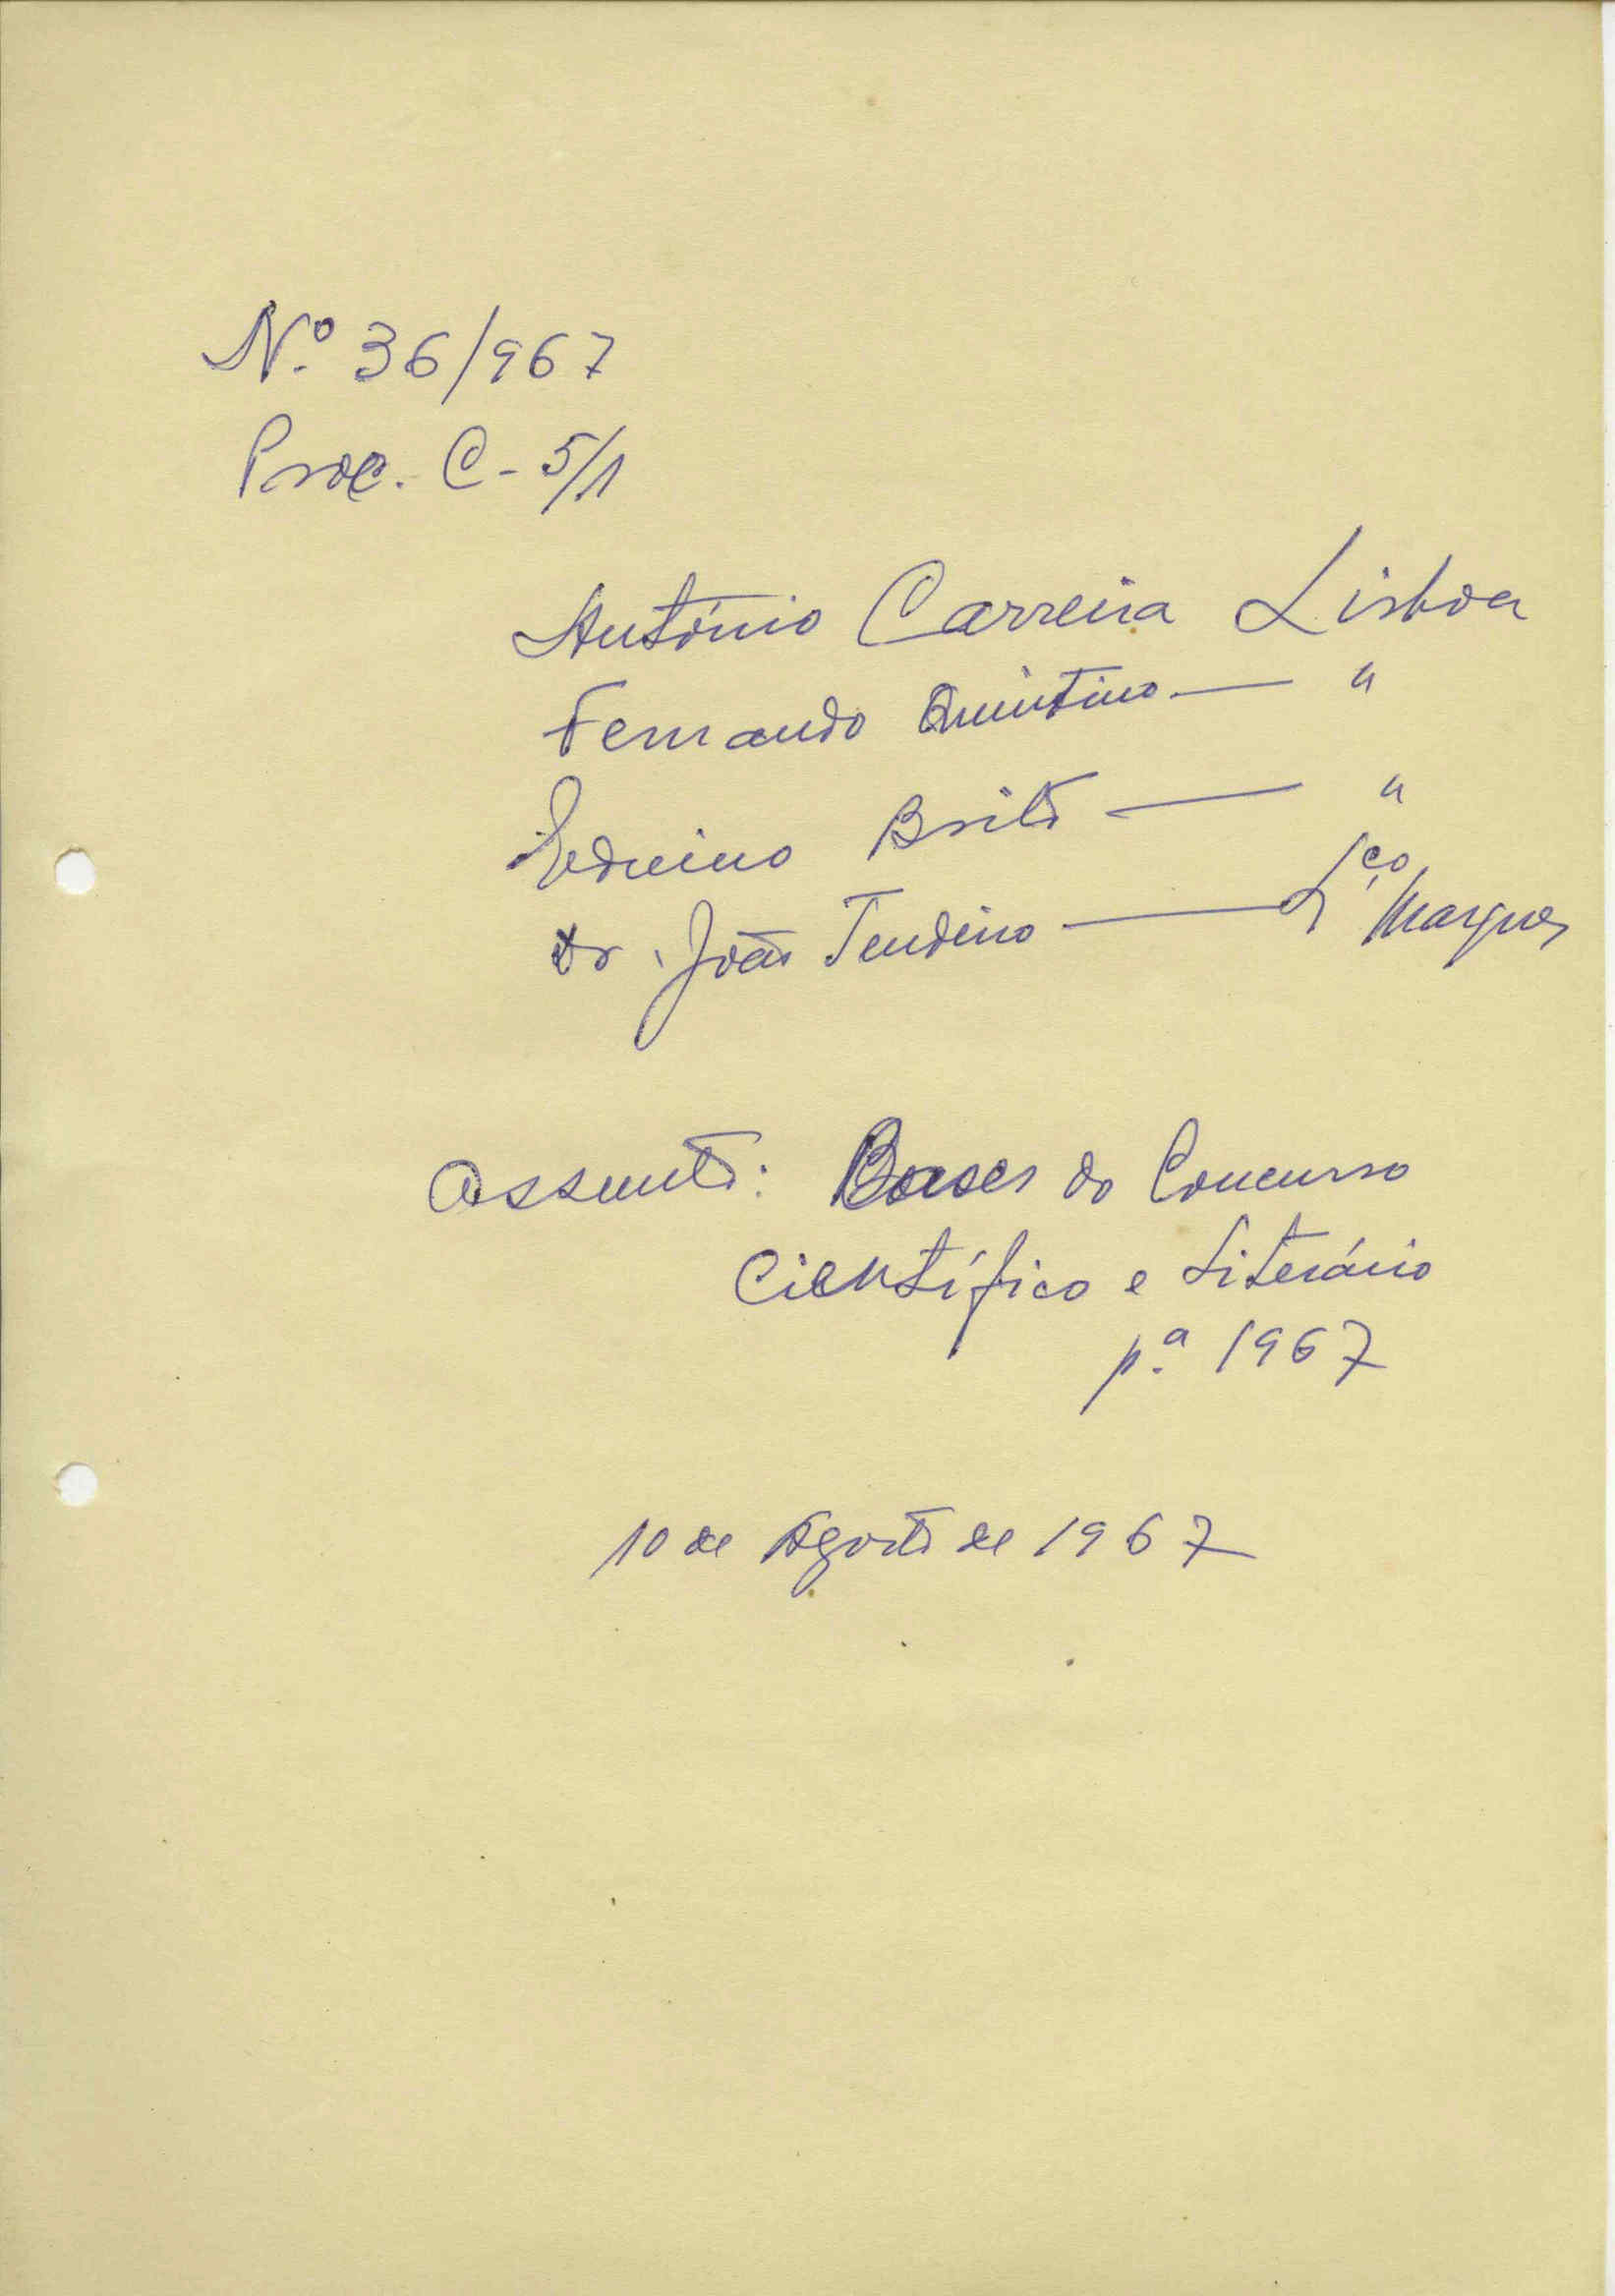 N.º 36/967
Proc. C-5/1
António Carreira Lisboa
Fernando Quintino — "
Edmino Brito — "
Dr. João Tendeiro — L.ço Marques
Assunto: Bases do Concurso
Científico e Literário
p.ª 1967
10 de Agosto de 1967